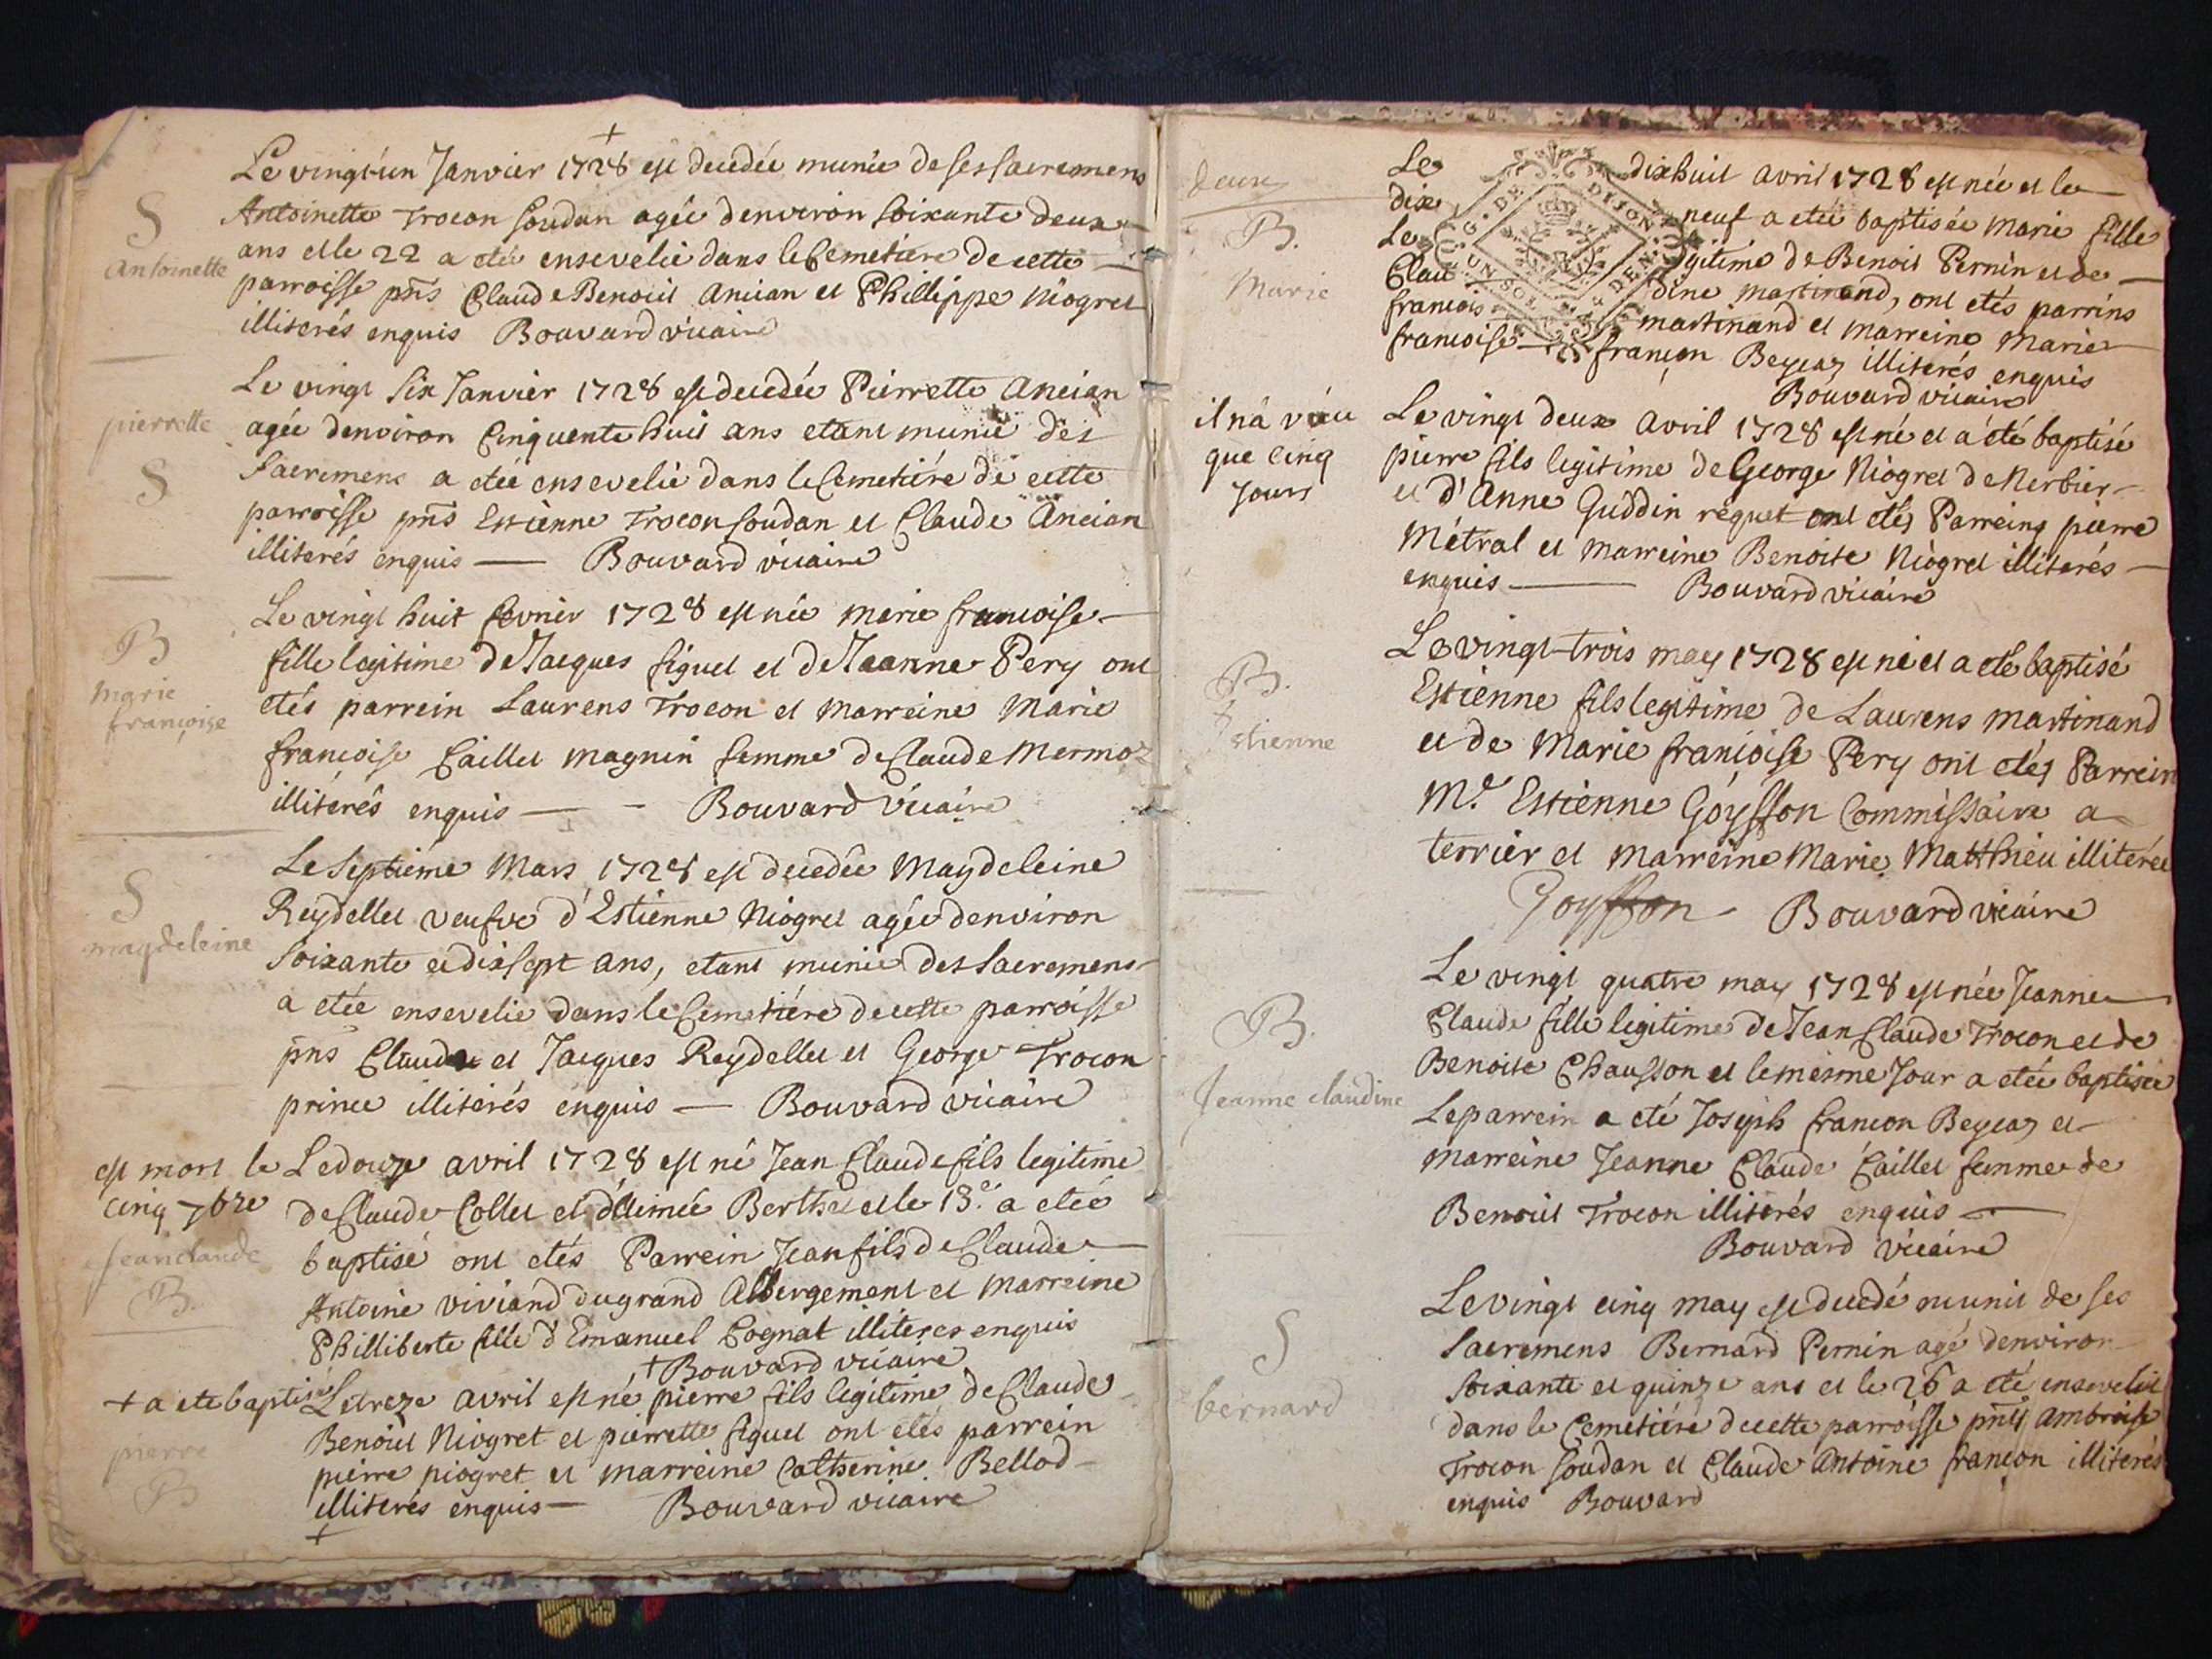 +
Le vingt-un Janvier 1728 est decedée munie de ses sacremens
S
Antoinette
Antoinette Trocon Soudan agée denviron soixante deux
ans et le 22 a etée ensevelie dans le Cemetiere de cette
parroisse pns Claude Benoit Ancian et Phillippe Niogret
illiterés enquis Bouvard vicaire
Le vingt six Janvier 1728 est decedée Pierrette Ancian
pierrette
S
agée denviron Cinquente huit ans etant munie des
Sacremens a etée ensevelie dans le Cemetiére de cette
parroisse pns Estienne Trocon Soudan et Claude Ancian
illiterés enquis — Bouvard vicaire
Le vingt huit fevrier 1728 est née marie francoise
B
marie
françoise
fille legitime de Jacques figuet et de Jeanne Pery ont
etés parrein Laurens Trocon et Marreine Marie
francoise Caillet magnin femme de Claude Mermoz
illiterés enquis — - Bouvard Vicaire
Le septiéme Mars 1728 est decedée Magdeleine
S
magdeleine
Reydellet veufve d'Estienne Niogret agée denviron
Soixante et dix sept ans, etant munie des Sacremens
a etée ensevelie dans le Cemetiére de cette parroisse
pns Claude et Jacques Reydellet et George Trocon
prince illiterés enquis — Bouvard vicaire
est mort le
cinq 7bre
Jean claude
B.
Le douze avril 1728 est né Jean Claude fils legitime
de Claude Collet et d'Aimée Berthet et le 13.e a eteé
baptisé ont etés Parrein Jean fils de Claude
Antoine viviand du grand Abergement et Marreine
Philliberte fille d'Emanuel Cognat illiteres enquis
+ Bouvard vicaire
+ a ete baptisé
pierre
B
Le treze avril est né pierre fils legitime de Claude
Benoit Niogret et pierrette figuet ont etés parrein
pierre piogret et marreine Catherine Bellod
illiterés enquis — Bouvard vicaire
+
deux
B.
Marie
G. DE DIJON
UN SOL DEN
Le dixhuit avril 1728 est née et le
dix neuf a etée baptisée Marie fille
Le gitime de Benoit Pernin et de
Clau dine Martinand, ont etés parrins
francois martinand et marreine Marie
francoise françon Beyeaz illiterés enquis
Bouvard vicaire
il n'a vécu
que cinq
Jours
Le vingt deux avril 1728 est né et a été baptisé
pierre fils legitime de George Niogret de Nerbier
et d'Anne Guddin réquet ont etés Parreins pierre
Métral et marreine Benoite Niogret illiterés
enquis — Bouvard vicaire
B.
Estienne
Le vingt-trois may 1728 est né et a eté baptisé
Estienne fils legitime de Laurens Martinand
et de Marie françoise Pery ont etés Parrein
M.e Estienne Goyffon Commissaire a
terrier et Marreine Marie Matthieu illiterée
Goyffon - Bouvard vicaire
B.
Jeanne claudine
Le vingt quatre may 1728 est née Jeanne
Claude fille legitime de Jean Claude Trocon et de
Benoite Chausson et le mesme Jour a etée baptisée
Le parrein a eté Joseph francon Beyeaz et
Marreine Jeanne Claude Caillet femme de
Benoit Trocon illiterés enquis —
Bouvard vicaire
S
bernard
Le vingt cinq may est decedé munit de ses
Sacremens Bernard Pernin agé denviron
Soixante et quinze ans et le 26 a eté ensevelit
dans le Cemetiére de cette parroisse pnts Ambroise
Trocon Soudan et Claude Antoine francon illiterés
enquis Bouvard